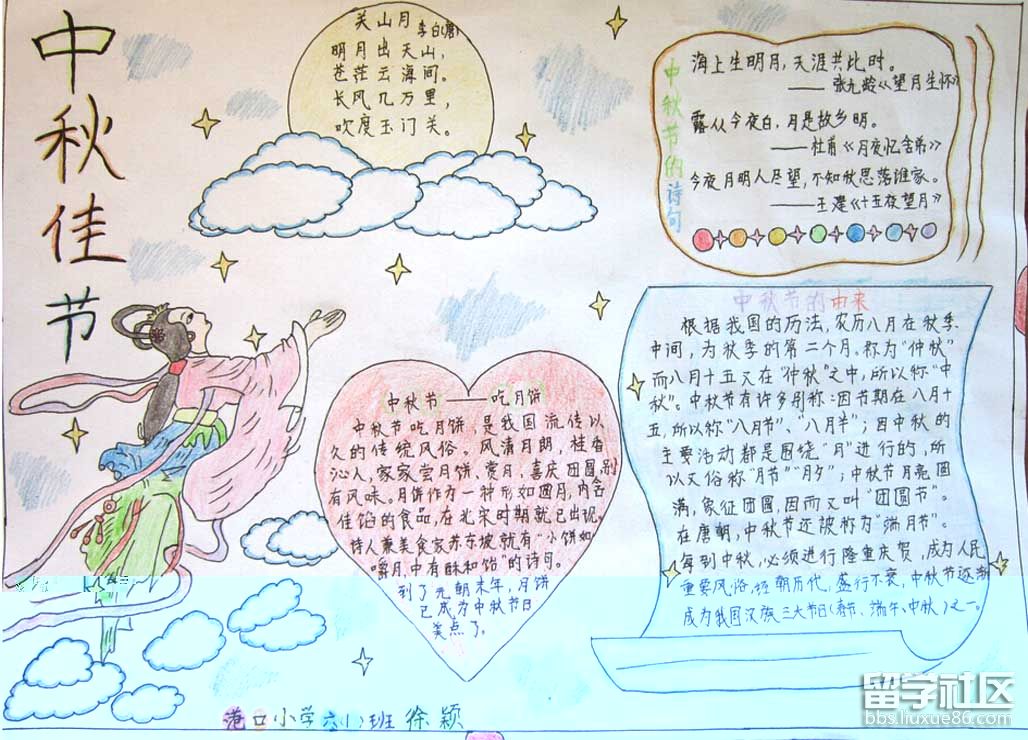 中秋佳节
关山月
李白(唐)
明月出天山，
苍茫云海间。
长风几万里，
吹度玉门关。
中秋节的诗句
海上生明月，天涯共此时。
——张九龄《望月生怀》
露从今夜白，月是故乡明。
——杜甫《月夜忆舍弟》
今夜月明人尽望，不知秋思落谁家。
——王建《十五夜望月》
中秋节的由来
根据我国的历法，农历八月在秋季
中间，为秋季的第二个月。称为“仲秋”
而八月十五又在“仲秋”之中，所以称“中
秋”。中秋节有许多别称：因节期在八月十
五，所以称“八月节”、“八月半”；因中秋的
主要活动都是围绕“月”进行的，所
以又俗称“月节”“月夕”；中秋节月亮圆
满，象征团圆，因而又叫“团圆节”。
在唐朝，中秋节还被称为“端月节”。
每到中秋，必须进行隆重庆贺，成为人民
重要风俗，经朝历代，盛行不衰，中秋节逐渐
成为我国汉族三大节日(春节、端午、中秋)之一。
中秋节——吃月饼
中秋节吃月饼，是我国流传以
久的传统风俗。风清月朗，桂香
沁人，家家尝月饼、赏月，喜庆团圆，别
有风味。月饼作为一种形如圆月，内含
佳馅的食品，在北宋时期就已出现，
诗人兼美食家苏东坡就有“小饼如
嚼月，中有酥和饴”的诗句。
到了元朝末年，月饼
已成为中秋节日
点了。
港口小学六(1)班 徐颖
留学社区
bbs.liuxue86.com